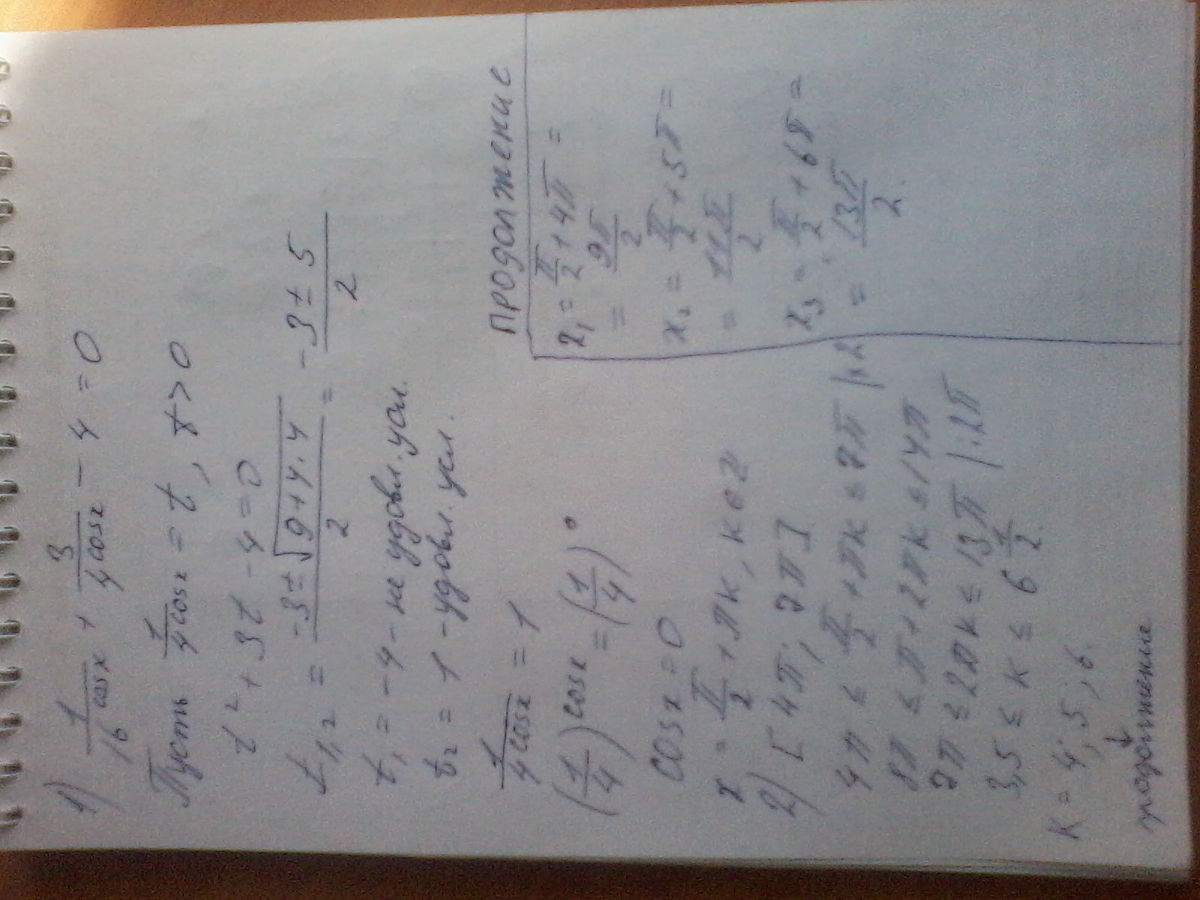 1) 1/16^cosx + 3/4^cosx - 4 = 0
Пусть 1/4^cosx = t, t > 0
t² + 3t - 4 = 0
t₁,₂ = (-3 ± √(9+4·4))/2 = (-3 ± 5)/2
t₁ = -4 - не удовл. усл.
t₂ = 1 - удовл. усл.
1/4^cosx = 1
(1/4)^cosx = (1/4)^0
cosx = 0
x = π/2 + πk, k ∈ Z
2) [4π; 7π]
4π ≤ π/2 + πk ≤ 7π |×2
8π ≤ π + 2πk ≤ 14π
7π ≤ 2πk ≤ 13π |:2π
3,5 ≤ k ≤ 6 1/2
k = 4; 5; 6.
↓
продолжение
ПРОДОЛЖЕНИЕ
x₁ = π/2 + 4π =
= 9π/2
x₂ = π/2 + 5π =
= 11π/2
x₃ = π/2 + 6π =
= 13π/2.